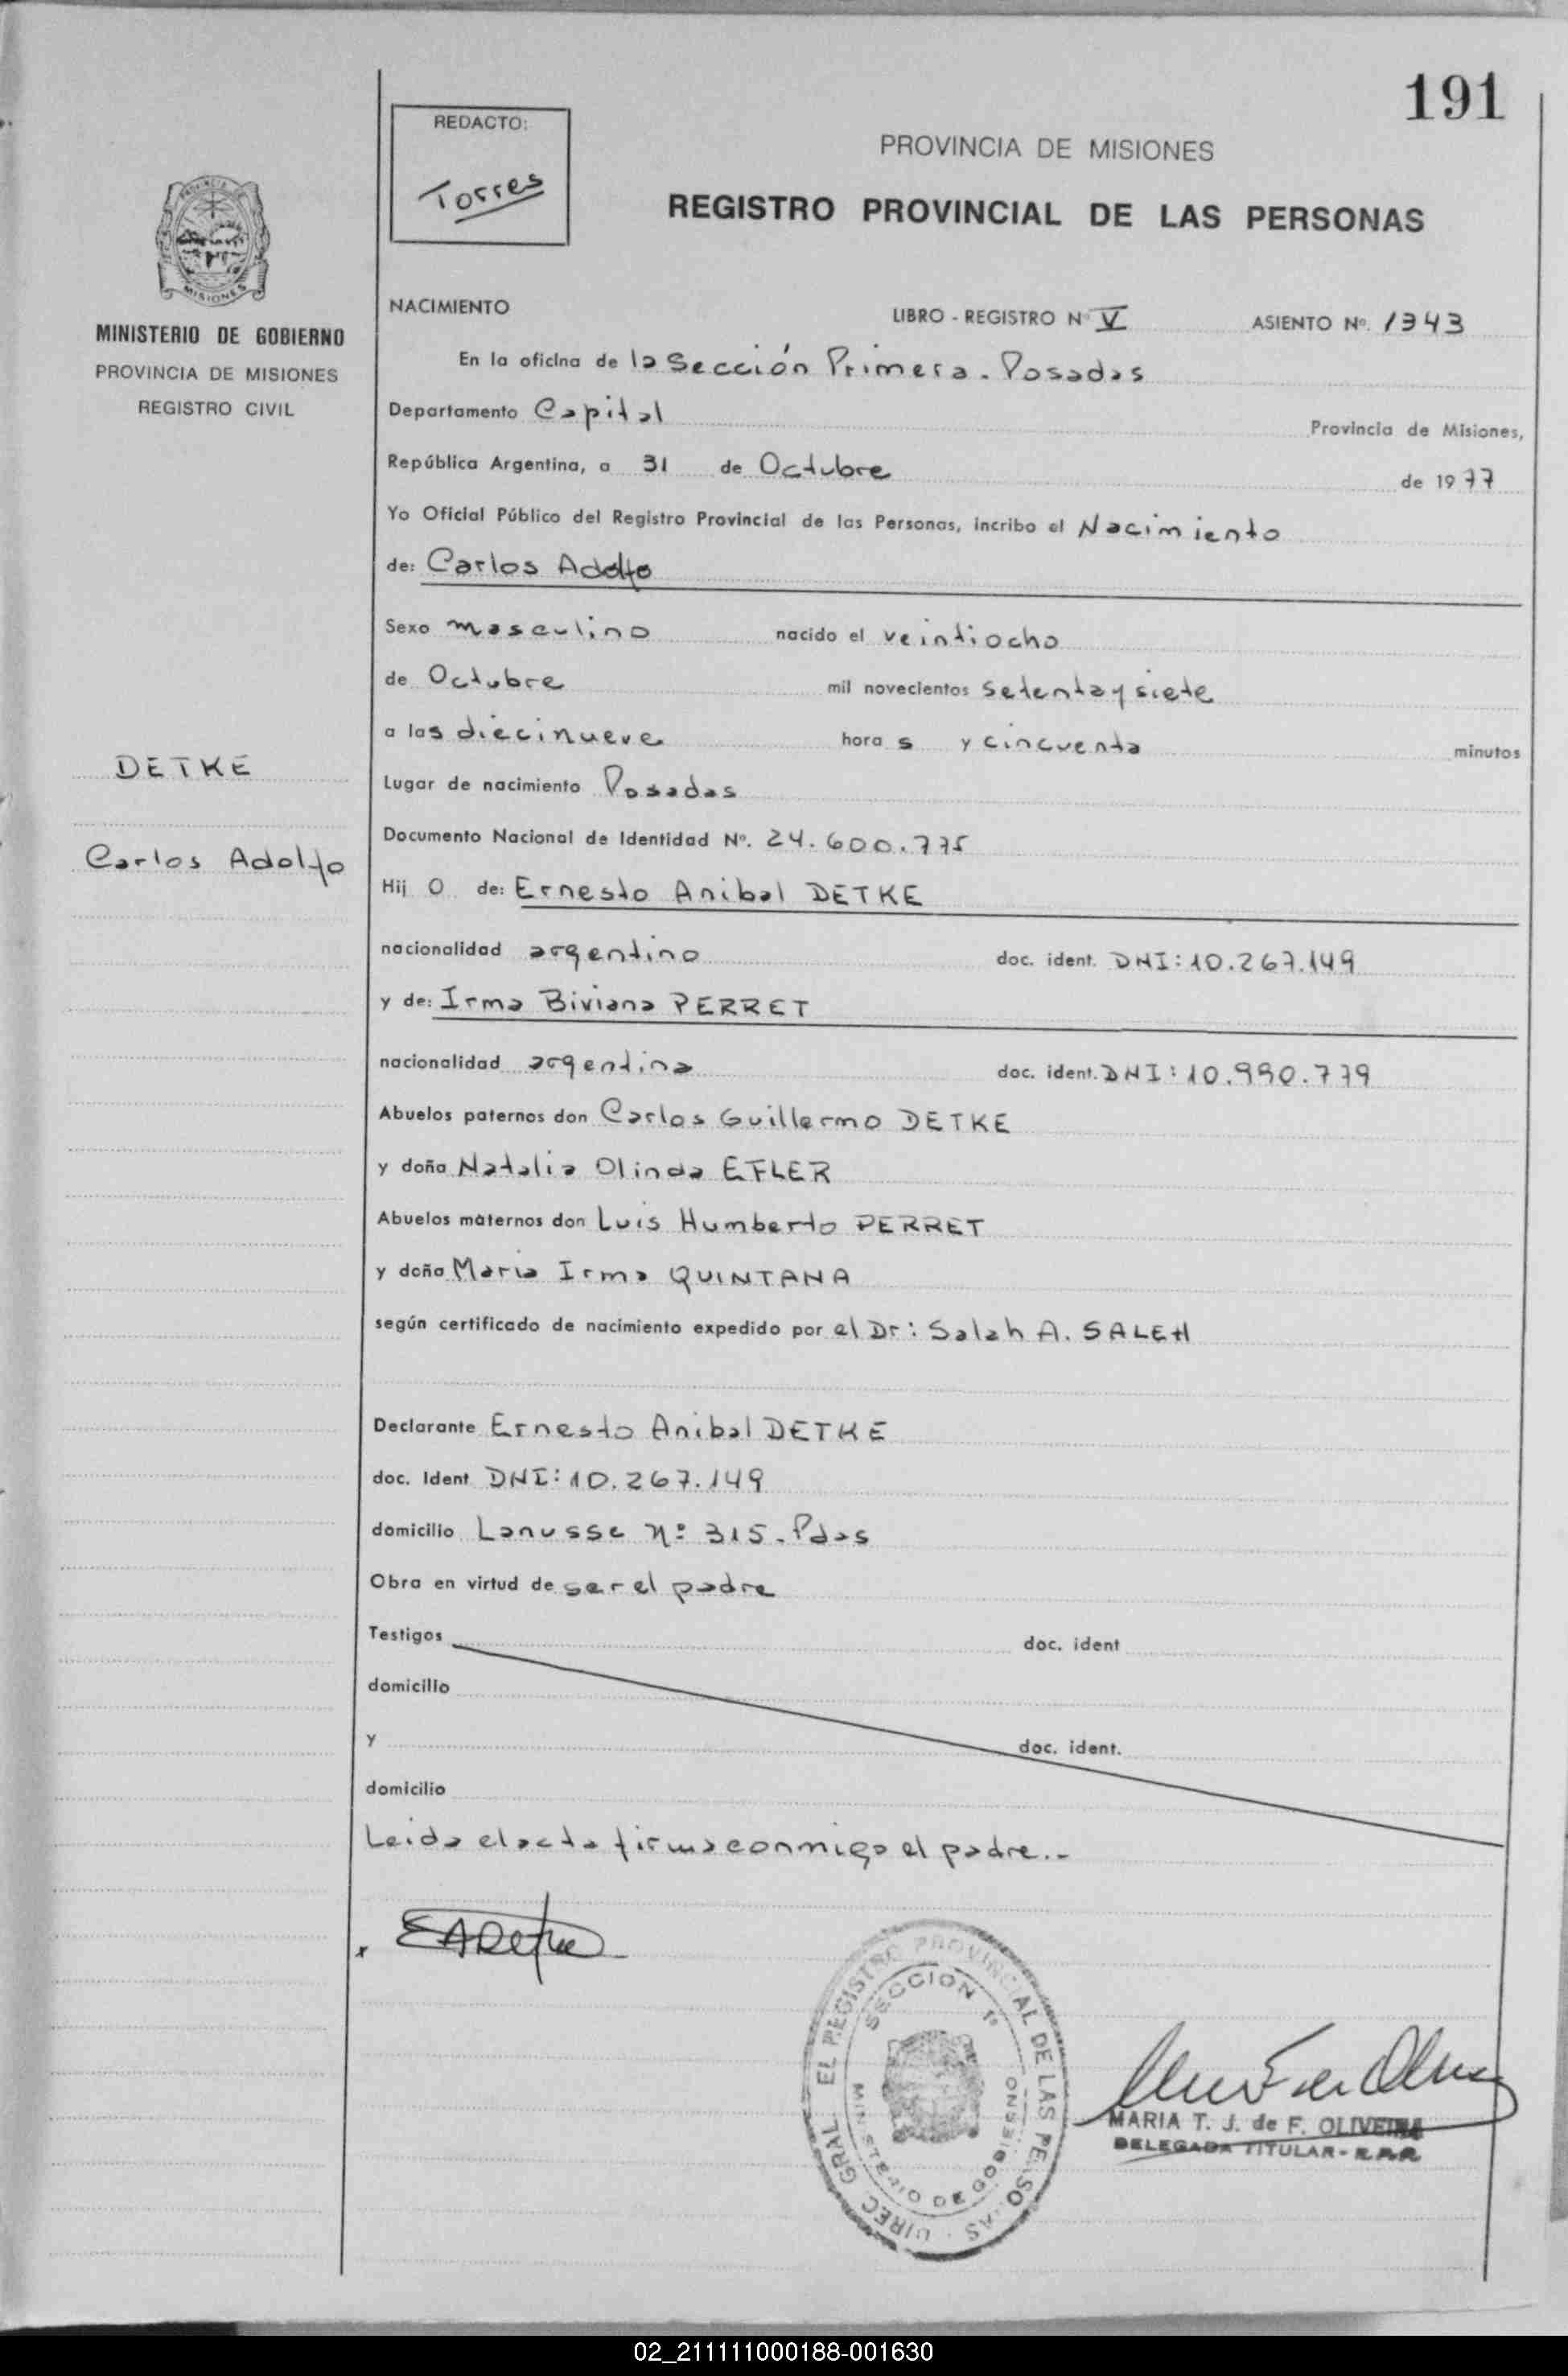 191
REDACTO:
Torres
PROVINCIA DE MISIONES
REGISTRO PROVINCIAL DE LAS PERSONAS
MISIONES
MINISTERIO DE GOBIERNO
PROVINCIA DE MISIONES
REGISTRO CIVIL
NACIMIENTO LIBRO - REGISTRO Nº V ASIENTO Nº. 1343
En la oficina de la Sección Primera. Posadas
Departamento Capital Provincia de Misiones,
República Argentina, a 31 de Octubre de 1977
Yo Oficial Público del Registro Provincial de las Personas, incribo el Nacimiento
de: Carlos Adolfo
Sexo masculino nacido el veintiocho
de Octubre mil novecientos setenta y siete
a las diecinueve hora s y cincuenta minutos
DETKE
Carlos Adolfo
Lugar de nacimiento Posadas
Documento Nacional de Identidad Nº. 24.600.775
Hij o de: Ernesto Anibal DETKE
nacionalidad argentino doc. ident. DNI: 10.267.149
y de: Irma Biviana PERRET
nacionalidad argentina doc. ident. DNI: 10.990.779
Abuelos paternos don Carlos Guillermo DETKE
y doña Natalia Olinda EFLER
Abuelos maternos don Luis Humberto PERRET
y doña Maria Irma QUINTANA
según certificado de nacimiento expedido por el Dr: Salah A. SALEH
Declarante Ernesto Anibal DETKE
doc. Ident DNI: 10.267.149
domicilio Lanusse Nº 315. Pdas
Obra en virtud de ser el padre
Testigos doc. ident
domicilio
y doc. ident.
domicilio
Leida el acta firma conmigo el padre..-
x EADetke
DIREC. GRAL. EL REGISTRO PROVINCIAL DE LAS PERSONAS
SECCION 1ª
MINISTERIO DE GOBIERNO
MARIA T. J. de F. OLIVEIRA
DELEGADA TITULAR - R.P.P.
02_211111000188-001630